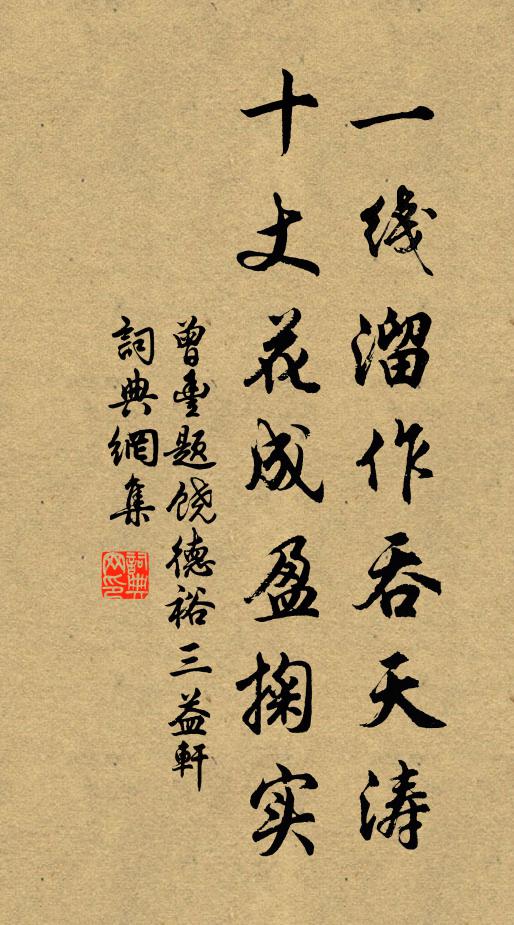 一线溜作吞天涛
十丈花成盈掬实
曾豊题饶德裕三益軒
詞典網集
詞典
网印